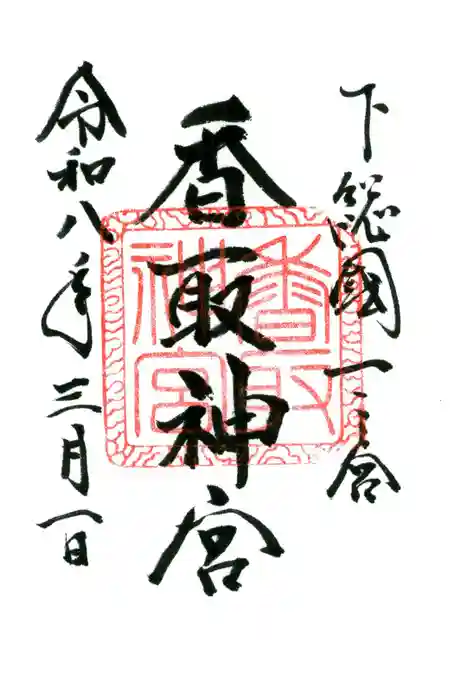 下総國一之宮
香取神宮
香取
神宮
令和八年三月一日